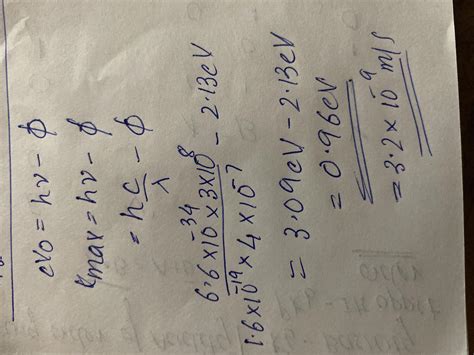 eV₀ = hν - ϕ
Kmax = hν - ϕ
= hc/λ - ϕ
6.6×10⁻³⁴×3×10⁸ / 1.6×10⁻¹⁹×4×10⁻⁷ - 2.13eV
= 3.09eV - 2.13eV
= 0.96eV
= 3.2×10⁻⁹ m/s